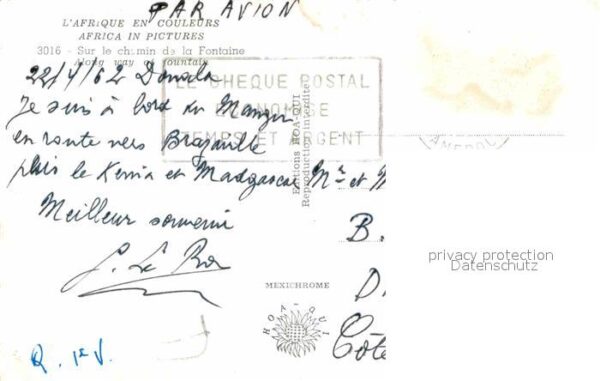 PAR AVION
L'AFRIQUE EN COULEURS
AFRICA IN PICTURES
3016 - Sur le chemin de la Fontaine
Along way of fountain
LE CHEQUE POSTAL
ECONOMISE
TEMPS ET ARGENT
22/4/62 Douala
Je suis à bord du
en route vers
puis le Kenia et Madgascar
Meilleur souvenir
Mr et M
B.
D.
Côte
Editions HOA-QUI
Reproduction interdite
MEXICHROME
HOA-QUI
privacy protection
Datenschutz